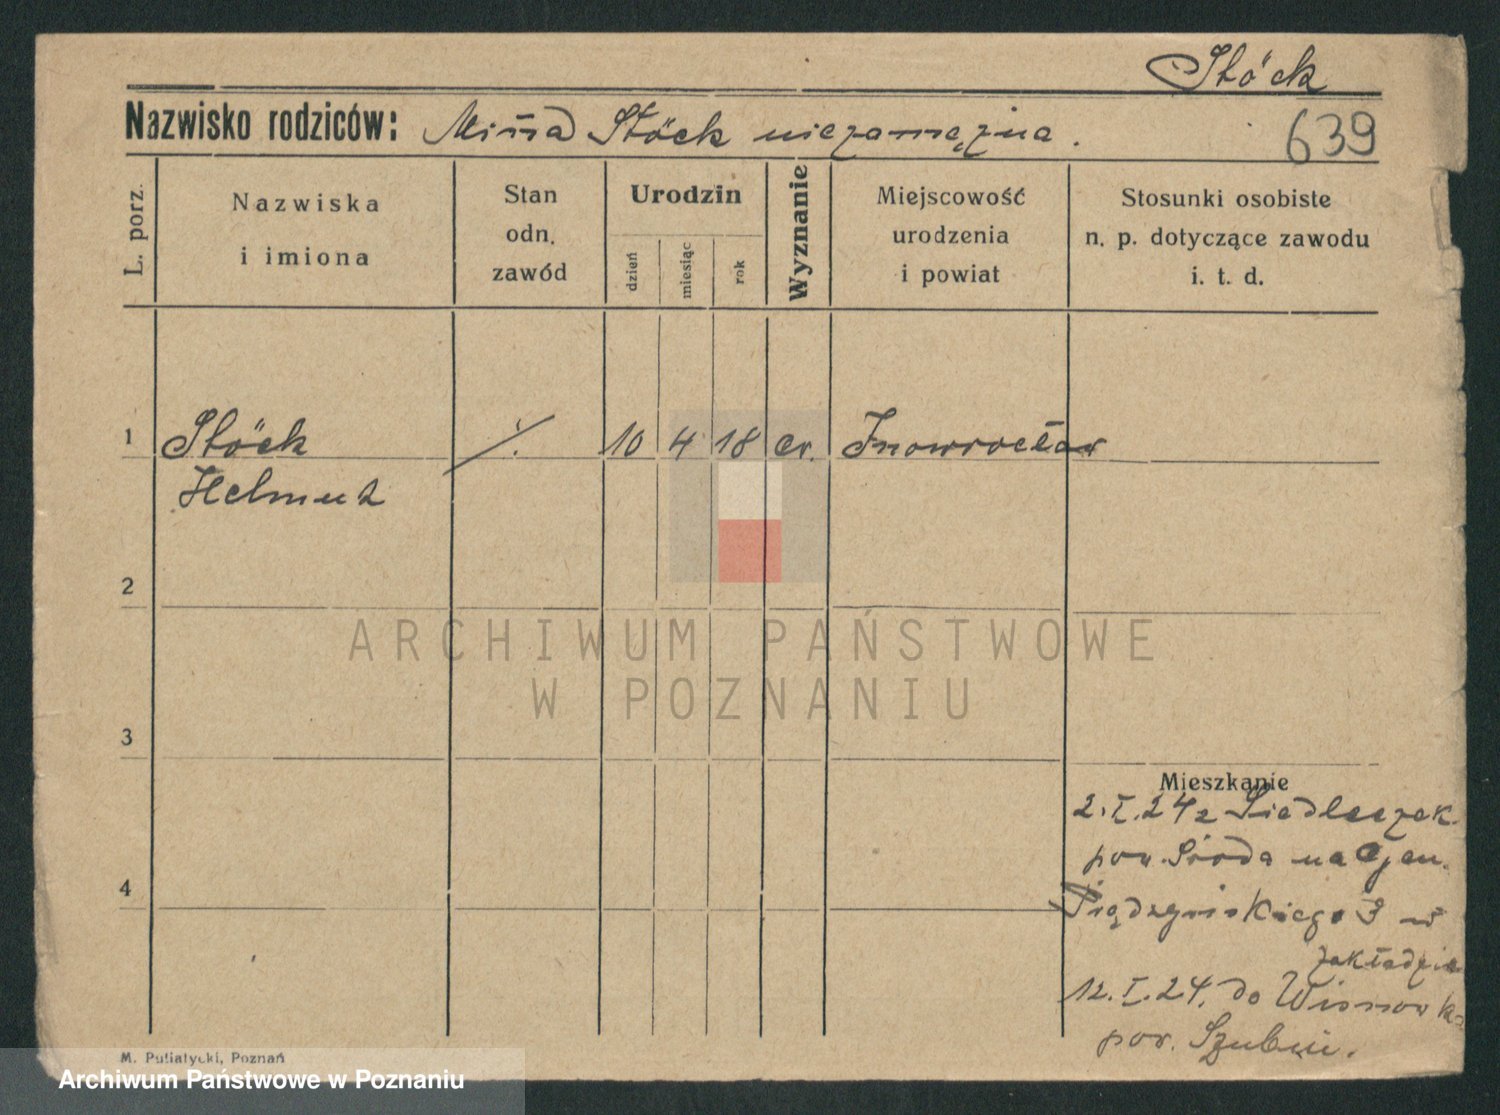 Stöck
Nazwisko rodziców: Minna Stöck niezamężna.
639
L. porz.
Nazwiska
i imiona
Stan
odn.
zawód
Urodzin
dzień
miesiąc
rok
Wyznanie
Miejscowość
urodzenia
i powiat
Stosunki osobiste
n. p. dotyczące zawodu
i. t. d.
1 Stöck ./. 10 4 18 ev. Inowrocław
Helmut
2
3
4
ARCHIWUM PAŃSTWOWE
W POZNANIU
Mieszkanie
2.I.24 z Siedleczek
pow. Środa na
3 w
zakładzie
12.I.24. do
pow. Szubin.
M. Putiatycki, Poznań
Archiwum Państwowe w Poznaniu